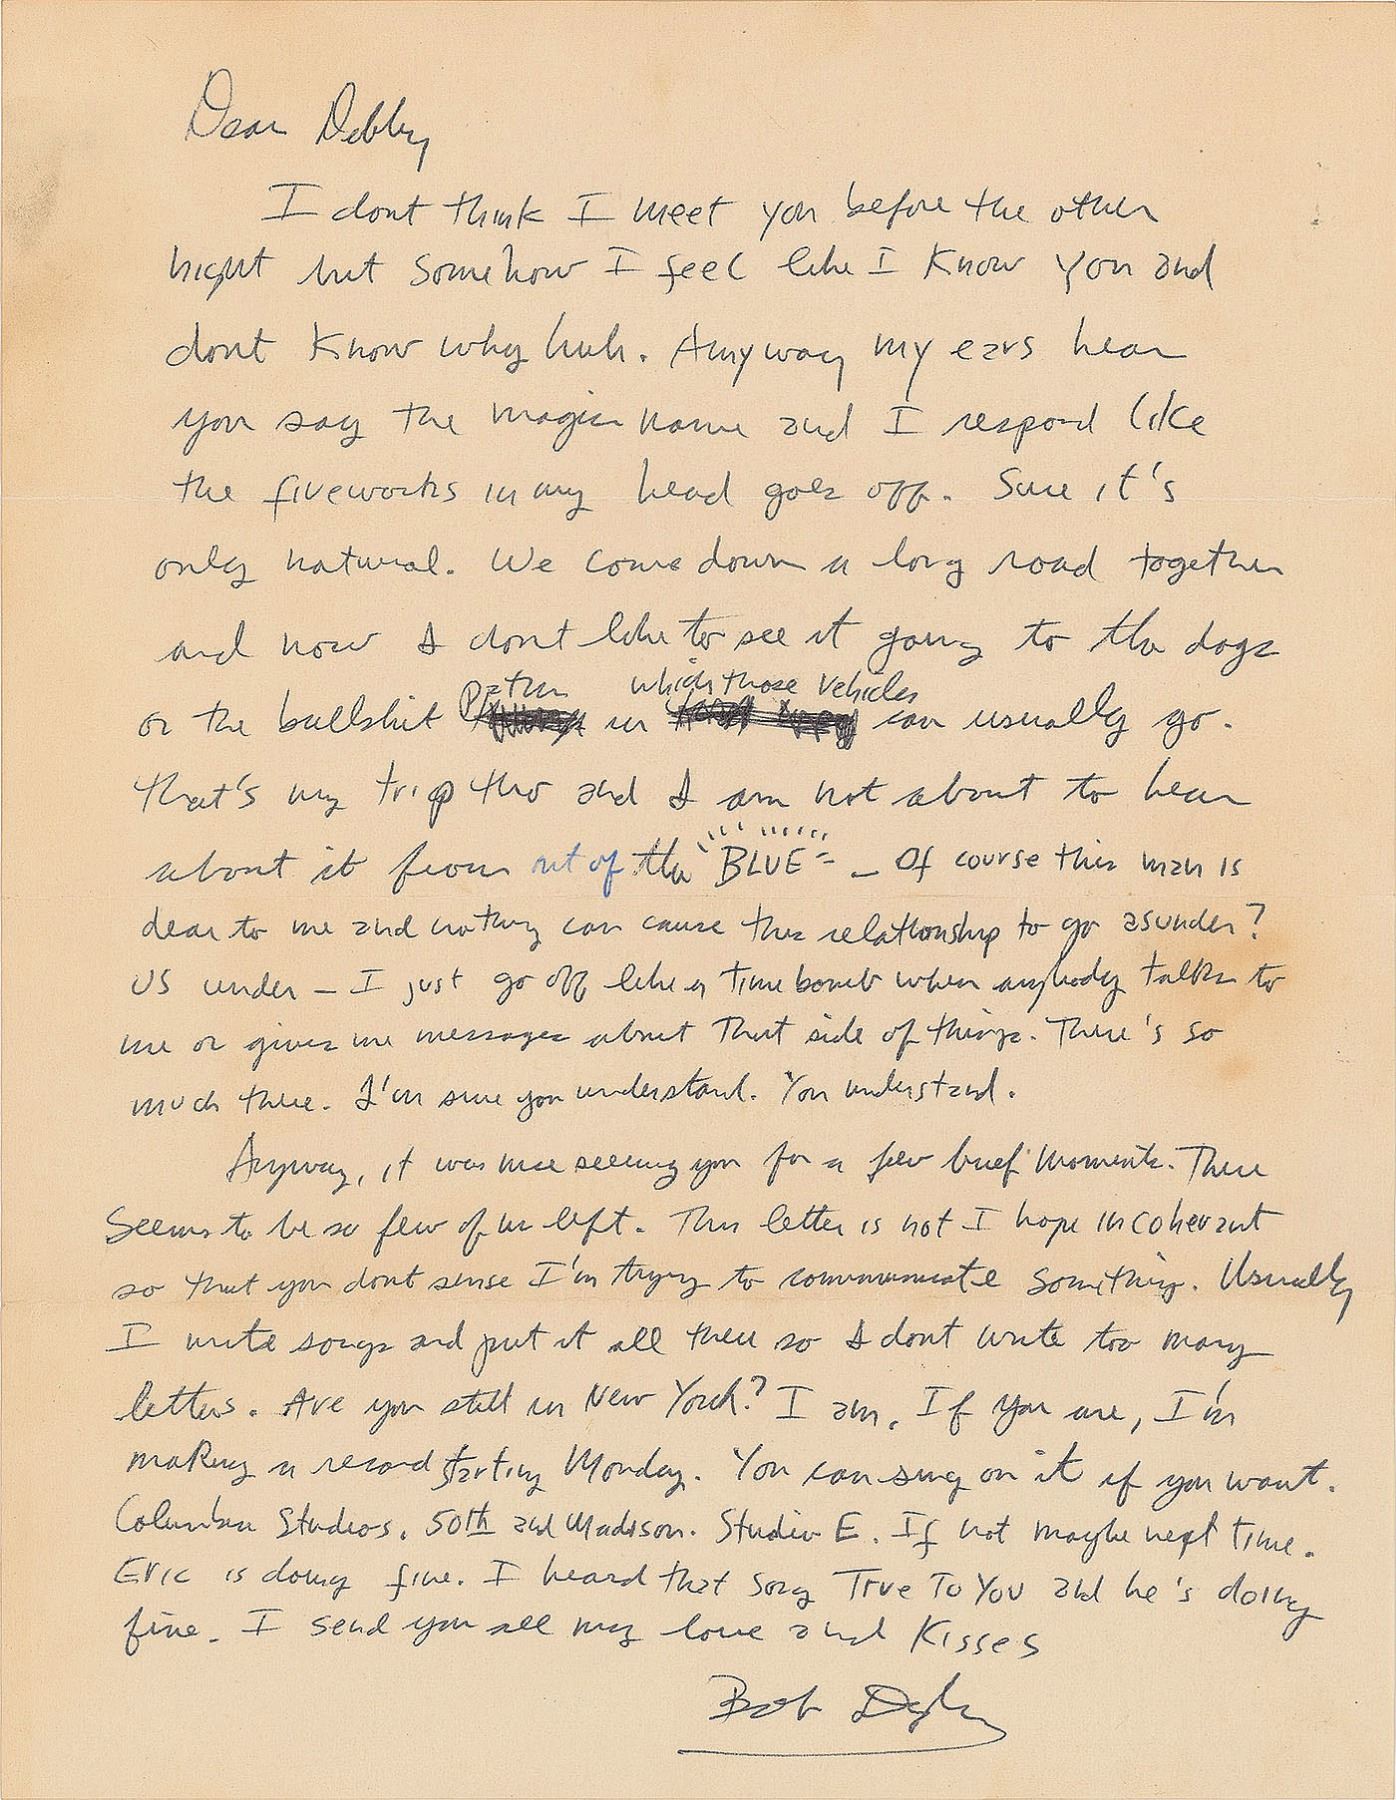 Dear Debby
I dont think I meet you before the other
night but somehow I feel like I know you and
dont know why huh. Anyway my ears hear
you say the magic name and I respond like
the fireworks in my head goes off. Sure it's
only natural. We come down a long road together
and now I dont like to see it going to the dogs
or the bullshit in which those vehicles can usually go.
That's my trip tho and I am not about to hear
about it from out of the "BLUE" - Of course this man is
dear to me and nothing can cause this relationship to go asunder?
US under - I just go off like a time bomb when anybody talks to
me or gives me messages about that side of things. There's so
much there. I'm sure you understand. You understand.
Anyway, it was nice seeing you for a few brief moments. There
seems to be so few of us left. This letter is not I hope incoherant
so that you dont sense I'm trying to communicate something. Usually
I write songs and put it all there so I dont write too many
letters. Are you still in New York? I am. If you are, I'm
making a record starting Monday. You can sing on it if you want.
Columbia Studios. 50th and Madison. Studio E. If not maybe next time.
Eric is doing fine. I heard that song True To You and he's doing
fine. I send you all my love and kisses
Bob Dylan